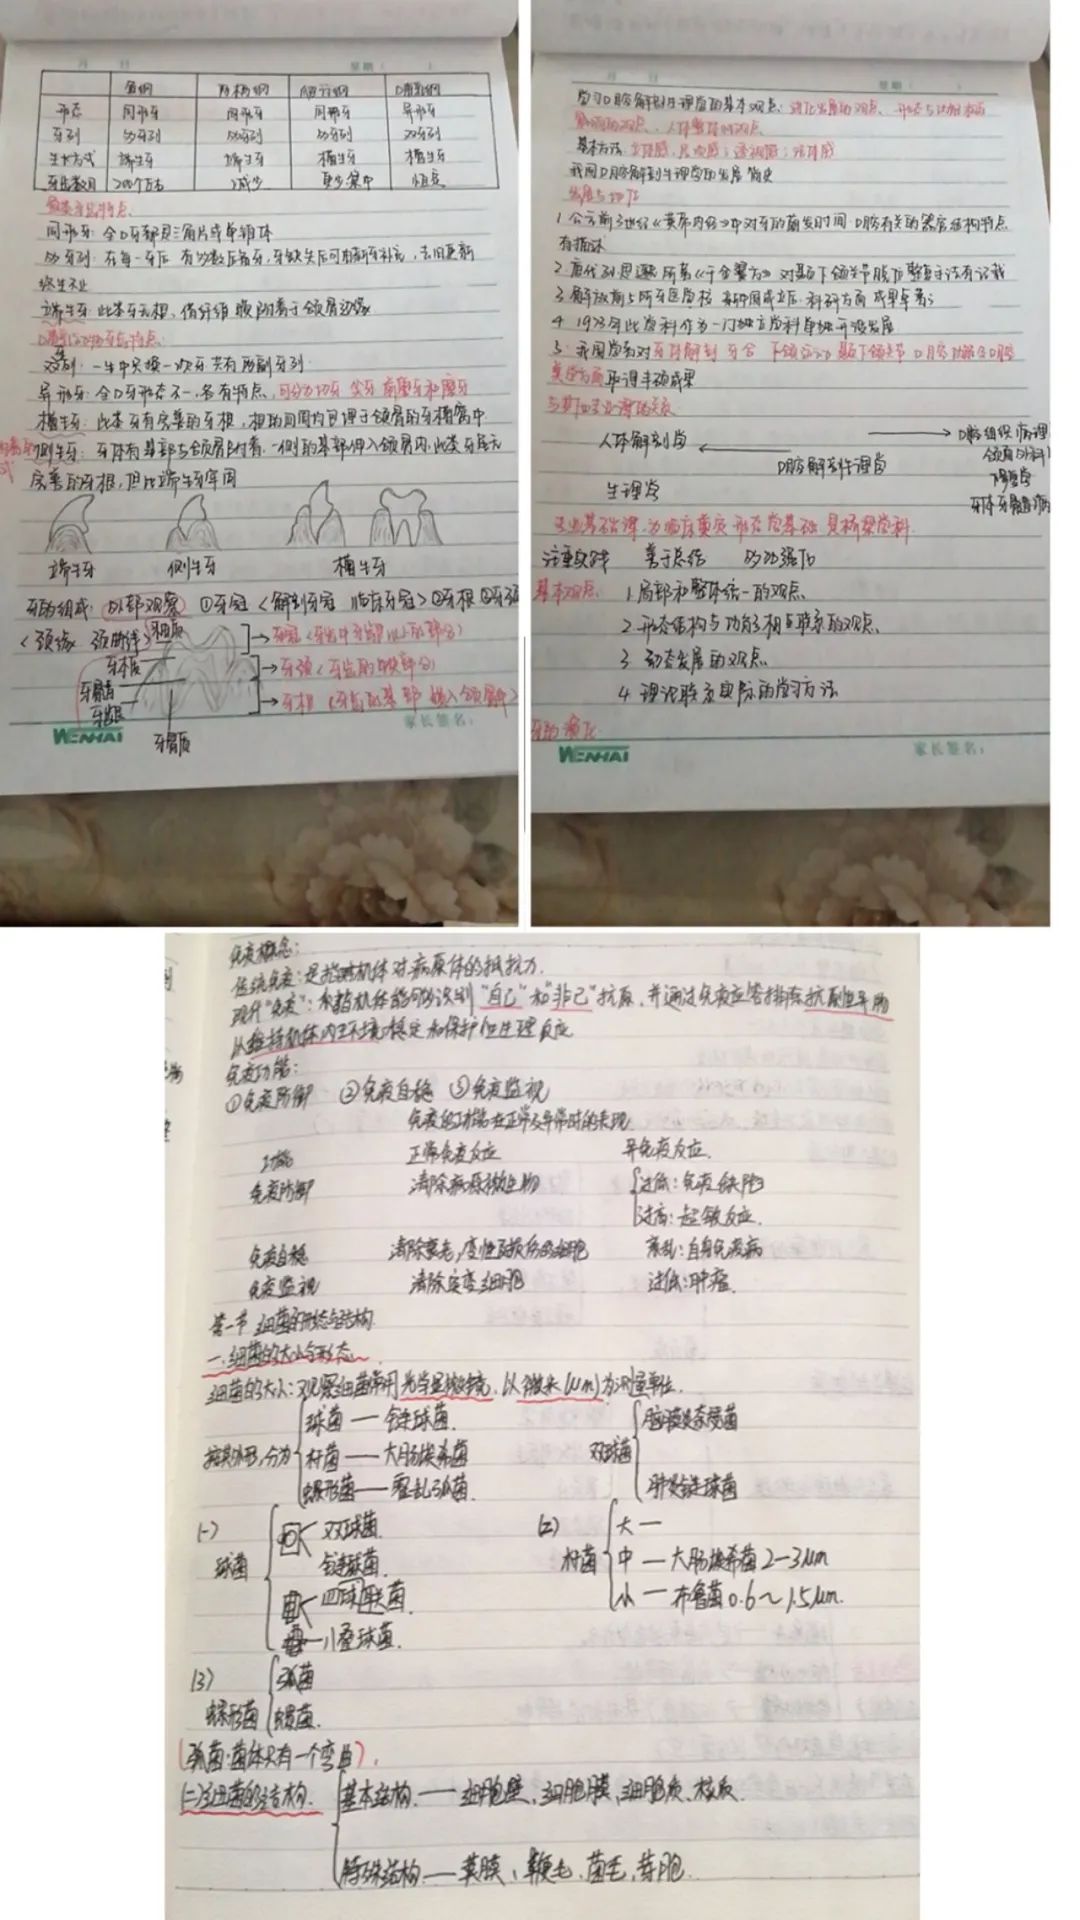 鱼纲 两栖纲 爬行纲 哺乳纲
形态 同形牙 同形牙 同形牙 异形牙
牙列 多牙列 多牙列 多牙列 双牙列
生长方式 端生牙 端生牙 槽生牙 槽生牙
牙齿数目 200个左右 减少 更少集中 恒定
同形牙: 全口牙都是三角片或单锥体
多牙列: 在每一牙后 有多数后备牙,牙缺失后可由新牙补充,去旧更新
终生不止
端生牙: 此类牙无根,借纤维膜附着于颌骨边缘
双列: 一生中只换一次牙共有两副牙列
异形牙: 全口牙形态不一,各有特点,可分为切牙 尖牙 前磨牙和磨牙
槽生牙: 此类牙有完善的牙根,根的周围均包埋于颌骨的牙槽窝中
侧生牙: 牙体有基部与颌骨附着,一侧的基部埋入颌骨内,此类牙虽无
完善的牙根,但比端生牙牢固
端生牙 侧生牙 槽生牙
牙的组成: 外部观察 ①牙冠<解剖牙冠 临床牙冠>②牙根③牙颈
<颈缘 颈曲线>
→牙冠
牙本质 →牙颈
牙骨质
→牙根
WENHAI 家长签名:
学习口腔解剖生理学的基本观点: 进化发展的观点、形态与功能相互
影响的观点、人体整体的观点
基本方法: 立体感;尺寸感;透视感;结构感
我国口腔解剖生理学的发展简史
1. 公元前3世纪《黄帝内经》中对牙的萌发时间 口腔有关的器官结构特点
有描述
2. 唐代孙思邈所著《千金翼方》对颞下颌关节脱位整复方法有记载
3. 解放前5所牙医学校 新中国成立后科研方面成果卓著
4. 1973年此学科作为一门独立学科单独开设发展
5. 我国学者对牙体解剖 牙合 下颌运动 颞下颌关节 口腔功能及口腔
美学方面取得丰硕成果
与其他专业课的关系
人体解剖学 口腔组织病理
口腔解剖生理学 颌面外科
生理学 修复学
牙体牙髓病
专业基础课,为临床奠定形态学基础 是桥梁学科
注重实践 善于总结
基本观点: 1. 局部和整体统一的观点
2. 形态结构与功能相互联系的观点
3. 动态发展的观点
4. 理论联系实际的学习方法
牙的演化
WENHAI 家长签名:
免疫概念:
传统免疫: 是指机体对病原体的抵抗力.
现代"免疫": 指机体能够识别"自己"和"非己"抗原,并通过免疫应答排除抗原性异物
以维持机体内环境稳定和保护性生理反应
免疫功能:
①免疫防御 ②免疫自稳 ③免疫监视
免疫的功能在正常及异常时的表现
功能 正常免疫反应 异免疫反应.
免疫防御 清除病原微生物 过低: 免疫缺陷
过高: 超敏反应.
免疫自稳 清除衰老,变性及损伤的细胞 紊乱: 自身免疫病
免疫监视 清除突变细胞 过低: 肿瘤.
第一节 细菌的形态与结构
一.细菌的大小与形态
细菌的大小: 观察细菌常用光学显微镜,以微米(μm)为测量单位.
球菌 — 链球菌. 脑膜炎奈瑟菌
按其外形,分为 杆菌 — 大肠埃希菌 双球菌
螺形菌 — 霍乱弧菌. 肺炎链球菌
(一) 双球菌 (2) 大 —
球菌 链球菌. 杆菌 中 — 大肠埃希菌 2-3μm
四联菌. 小 — 布鲁菌 0.6~1.5μm.
八叠球菌.
(3) 弧菌
螺形菌 螺菌.
(弧菌:菌体只有一个弯曲).
(二)细菌的结构. 基本结构. — 细胞壁、细胞膜、细胞质、核质.
特殊结构 — 荚膜、鞭毛、菌毛、芽胞.